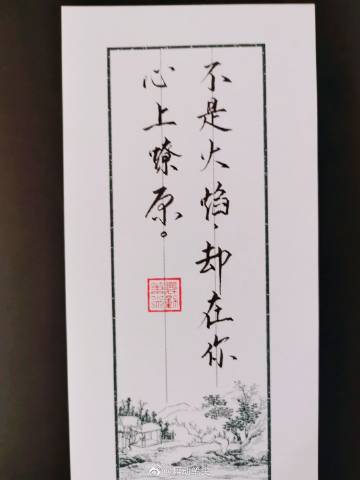 不是火焰，却在你
心上燎原。